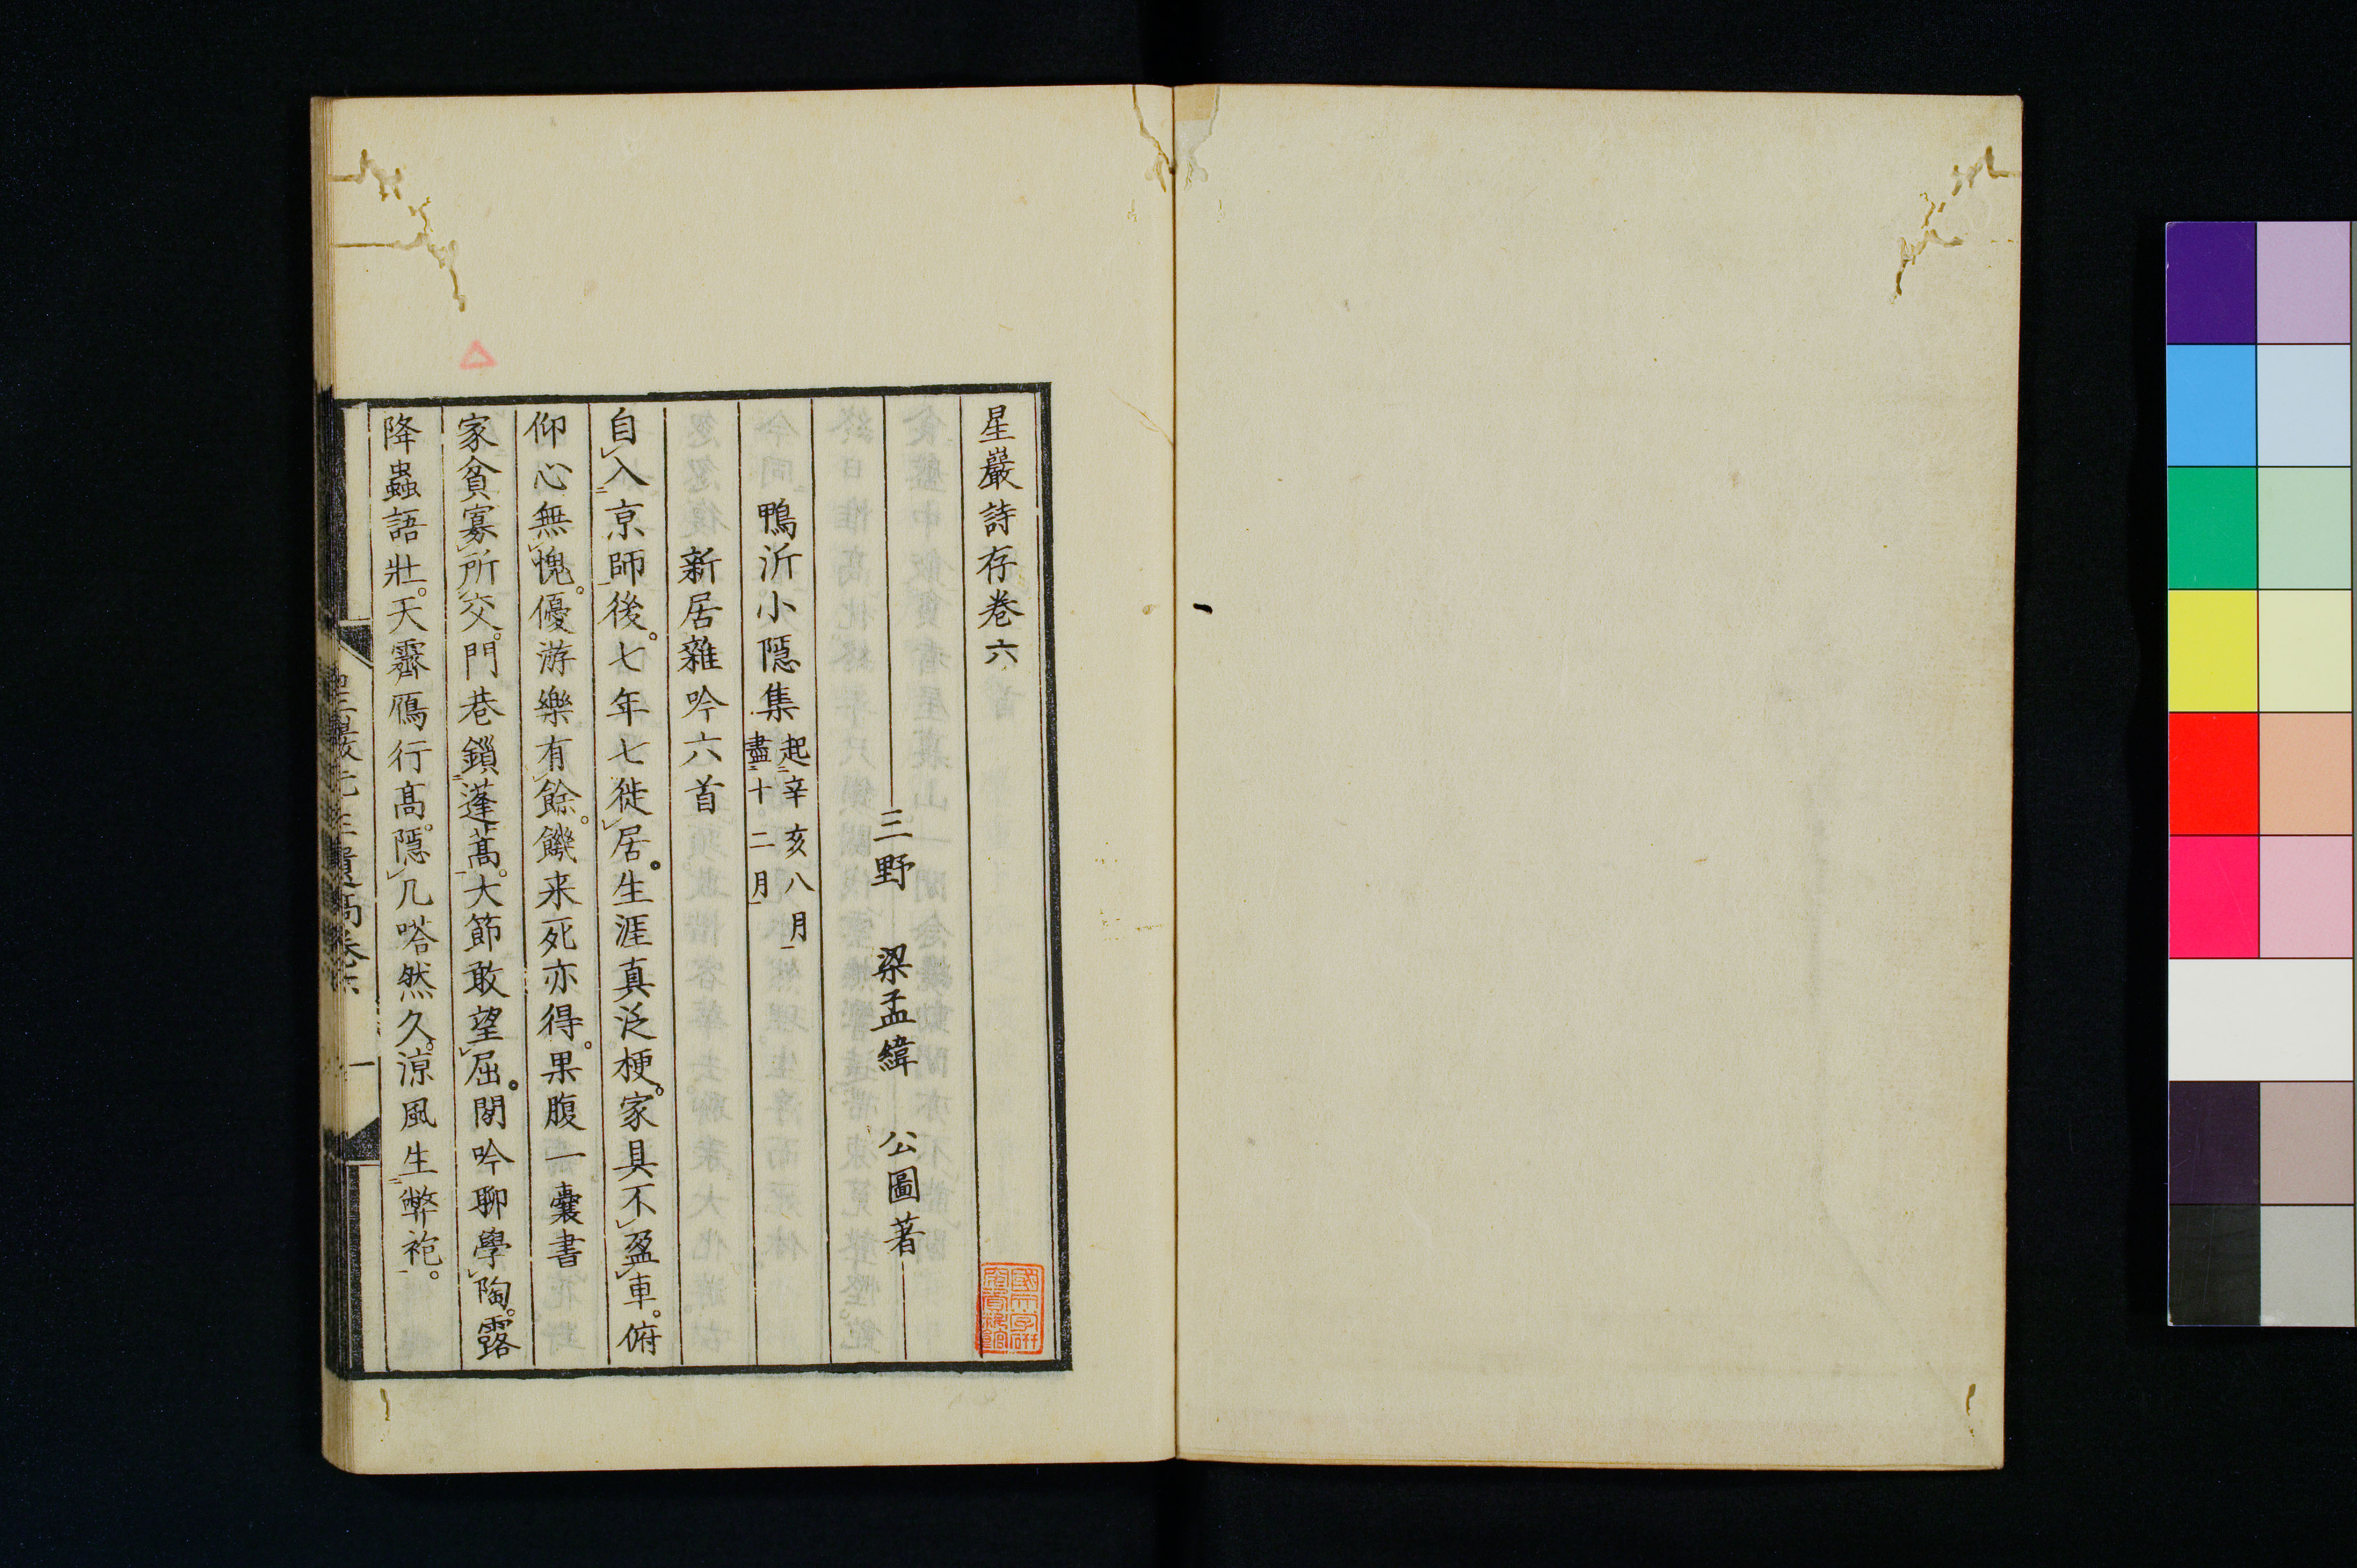 星巖詩存卷六
三野　梁孟緯　公圖著
鴨沂小隱集 起辛亥八月
盡十二月
新居雜吟六首
自入京師後。七年七徙居。生涯真泛梗。家具不盈車。俯
仰心無愧。優游樂有餘。饑来死亦得。果腹一囊書
家貧寡所交。門巷鎖蓬蒿。大節敢望屈。閒吟聊學陶。露
降蟲語壯。天霽鴈行高。隱几嗒然久。涼風生弊袍。
一
國文學研
究資料館